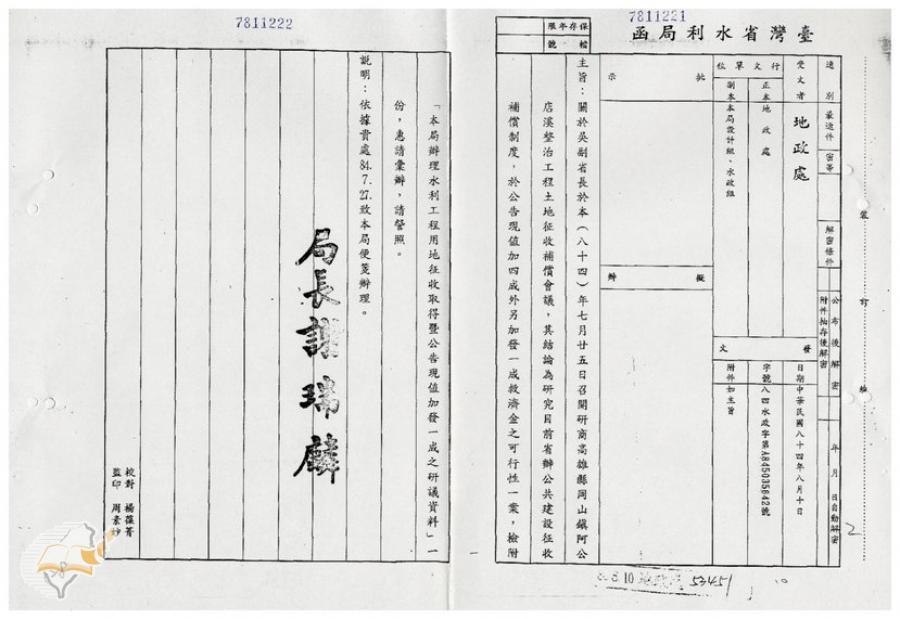 7811221
臺灣省水利局函
保存年限
檔號
速別
最速件
密等
解密條件
公布後解密
附件抽存後解密
年月日自動解密
受文者
地政處
行文單位
正本
地政處
副本
本局設計組、水政組
發文
日期
中華民國八十四年八月十日
字號
八四水政字第A845035642號
附件
如主旨
批示
擬辦
主旨：關於吳副省長於本（八十四）年七月廿五日召開研商高雄縣岡山鎮阿公
店溪整治工程土地征收補償會議，其結論為研究目前省辦公共建設征收
補償制度，於公告現值加四成外另加發一成救濟金之可行性一案，檢附
裝
訂
線
2
10
53451
7811222
「本局辦理水利工程用地征收取得暨公告現值加發一成之研議資料」一
份，惠請彙辦，請詧照。
説明：依據貴處84.7.27.致本局便箋辦理。
局長謝瑞麟
校對 楊蓓菁
監印 周素妙